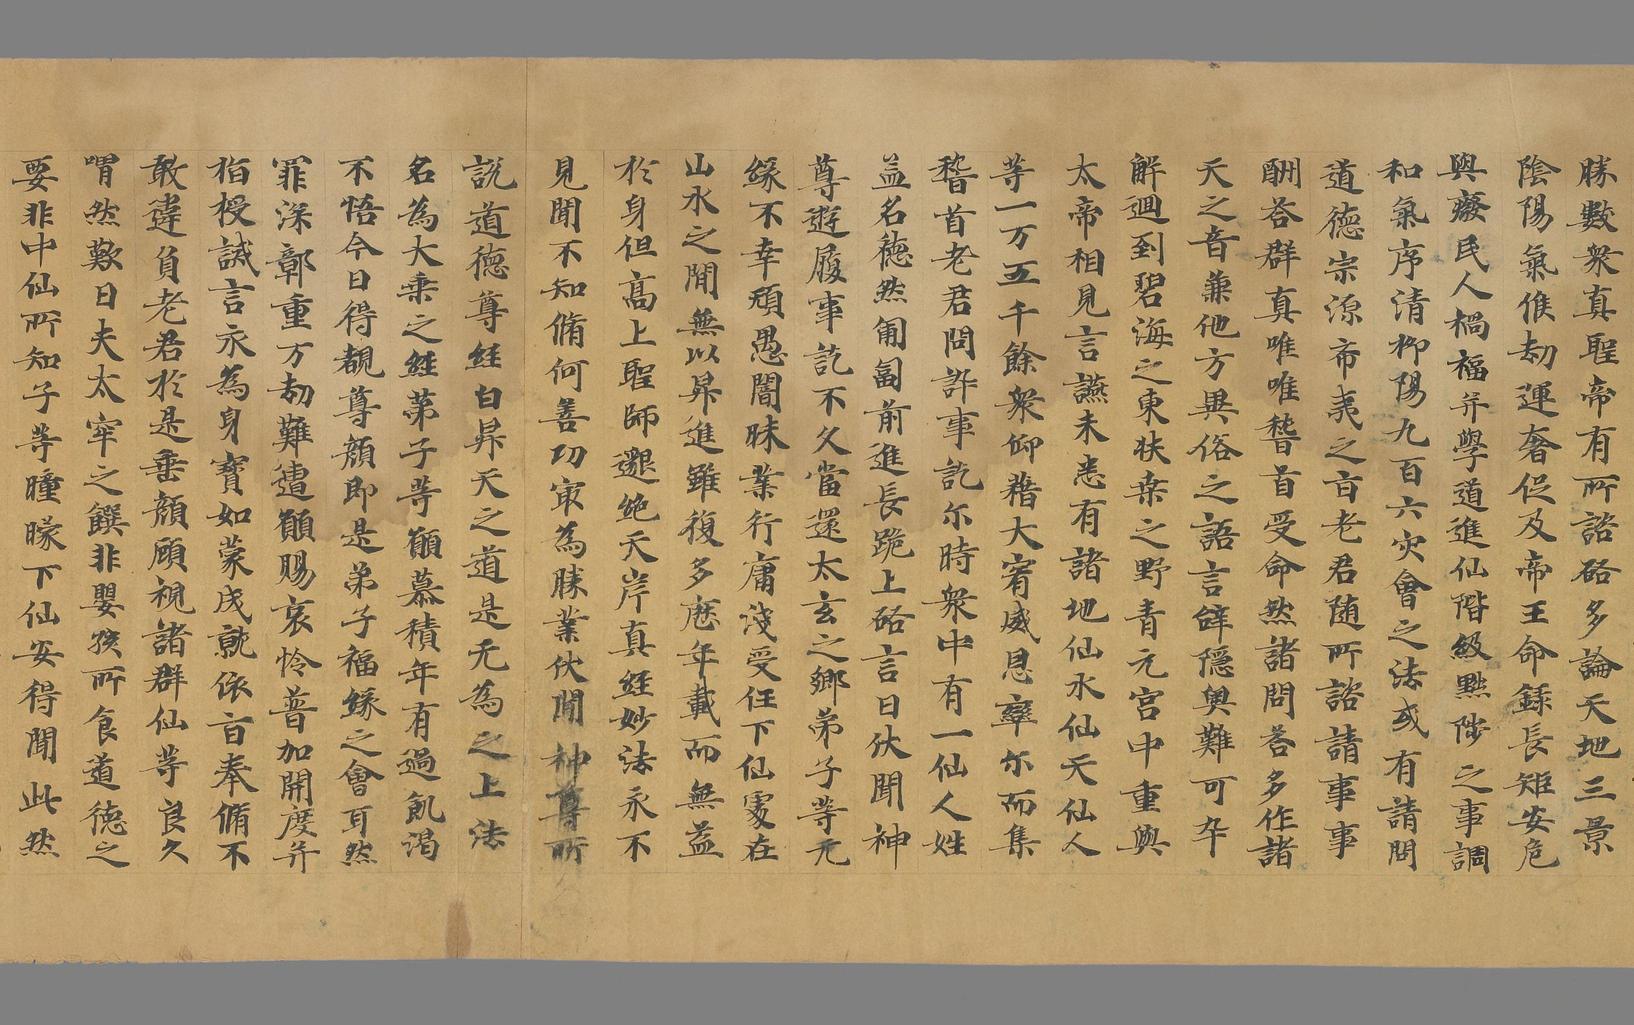 勝數衆真聖帝有所諮啓多論天地三景
陰陽氣候劫運奢促及帝王命錄長短安危
興癈民人禍福并學道進仙階級黜陟之事調
和氣序清抑陽九百六灾會之法或有請問
道德宗源希夷之旨老君随所諮請事事
酬荅群真唯唯稽首受命然諸問荅多作諸
天之音兼他方異俗之語言辝隱奧難可卒
解迴到碧海之東扶桒之野青元宮中重與
太帝相見言讌未悉有諸地仙水仙天仙人
等一万五千餘衆仰藉大宥威恩率尓而集
稽首老君問訊事訖尓時衆中有一仙人姓
益名德然匍匐前進長跪上啓言曰伏聞神
尊遊履事訖不久當還太玄之鄉弟子等元
緣不幸頑愚闇昧業行庸淺受任下仙處在
山水之間無以昇進雖復多歷年載而無益
於身但高上聖師邈絶天岸真經妙法永不
見聞不知脩何善功冣為勝業伏聞神尊所
說道德尊經白昇天之道是无為之上法
名為大乗之經弟子等願慕積年有過飢渴
不悟今日得覩尊顏即是弟子福緣之會耳然
罪深鄣重万劫難遭願賜哀怜普加開度并
指授誡言永為身寶如蒙成就依旨奉脩不
敢違負老君於是垂顏顧視諸群仙等良久
喟然歎曰夫太窂之饌非嬰孩所食道德之
要非中仙所知子等瞳矇下仙安得聞此然